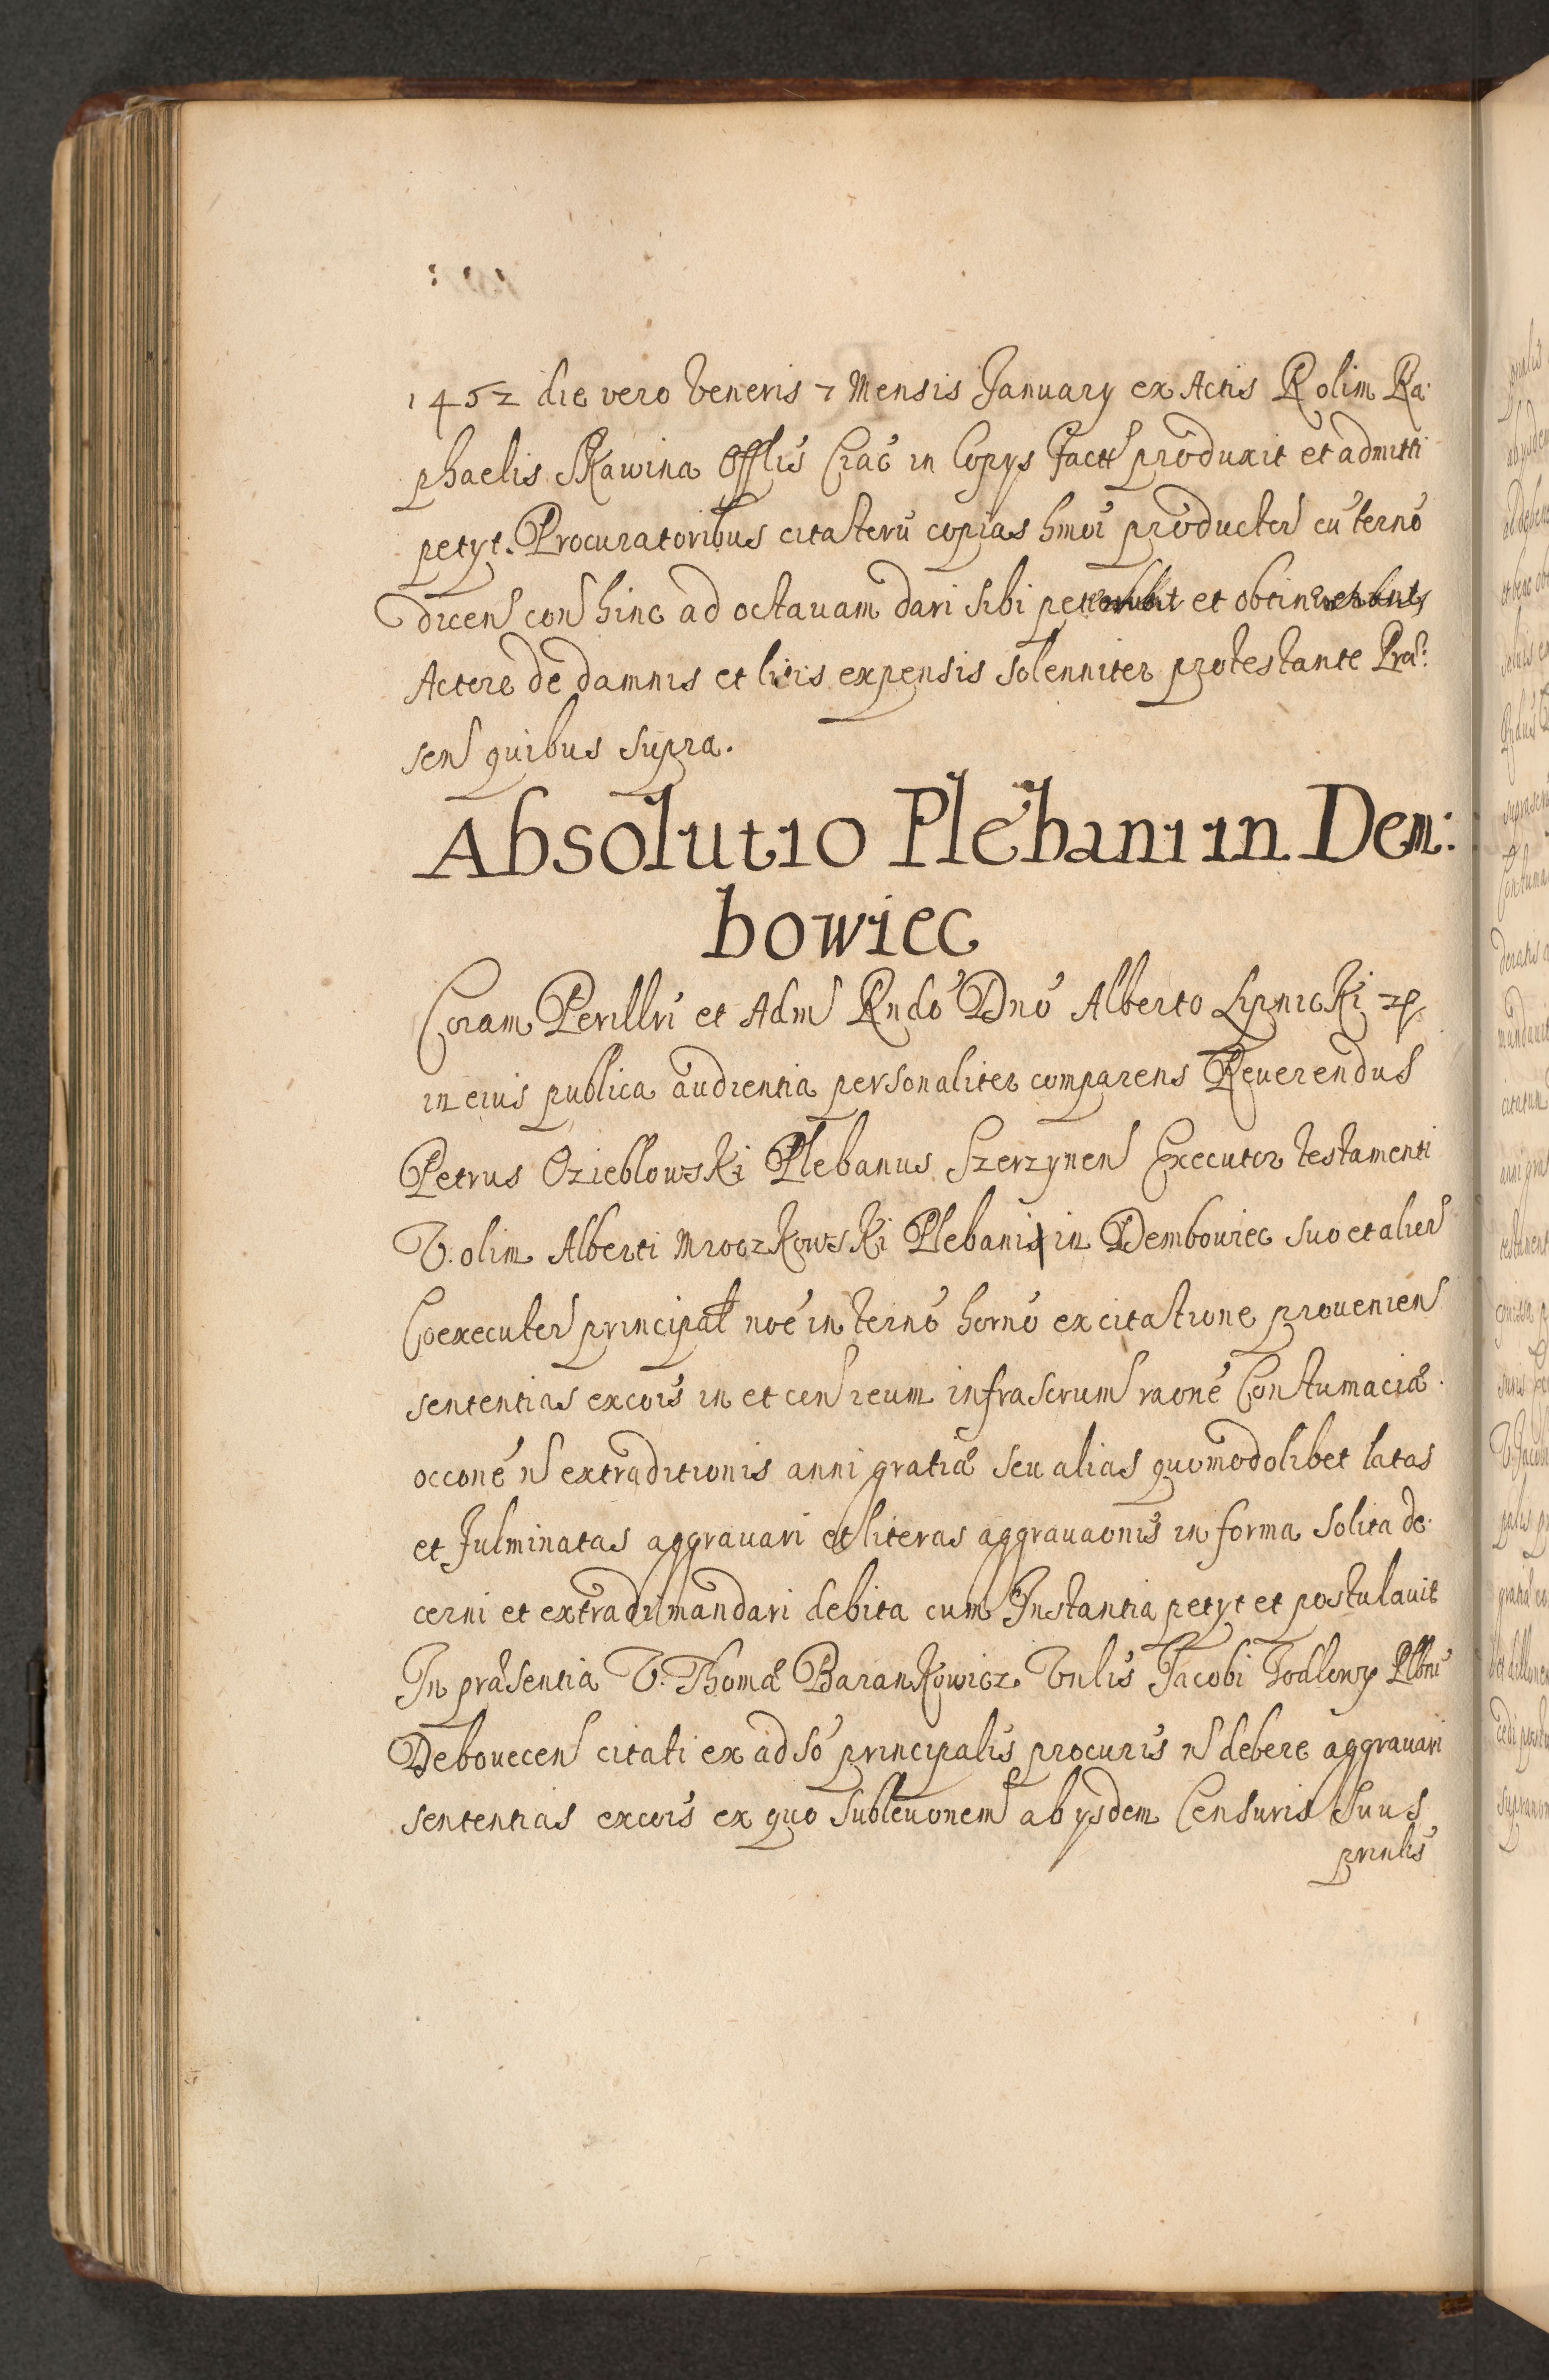 1452 die vero Veneris 7 Mensis January ex Actis R olim Ra:
phaelis Skawina Offlis Crac in Copys factt produxit et admitti
petyt. Procuratoribus citatorū copias hmōi productas cū terno
dicen con hinc ad octauam dari sibi et
Actore de damnis et litis expensis solenniter protestante Præ:
sen quibus supra.
Absolutio Plebani in Dem:
bowiec
Coram Perillri et Adm Rndo Dno Alberto Lipnicki
in eius publica audientia personaliter comparens Reuerendus
Petrus Ozieblowski Plebanus Szerzynen Executor testamenti
V. olim Alberti Mroczkowski Plebani in Dembowiec suo et alior
Coexecutor principal noe in terno horno ex citatione prouenien
sententias excois in et con reum infrascrum raone Contumaciæ
occone n extraditionis anni gratiæ seu alias quomodolibet latas
et fulminatas aggrauari et literas aggrauaonis in forma solita de:
cerni et extradi mandari debita cum Instantia petyt et postulauit
In præsentia V. Thomæ Barankowicz Vnlis Jacobi Jodlowy Plbni
Debouecen citati ex adso principalis procuris n debere aggrauari
sententias excois ex quo subleuonem ab ysdem Censuris suus
prinlis